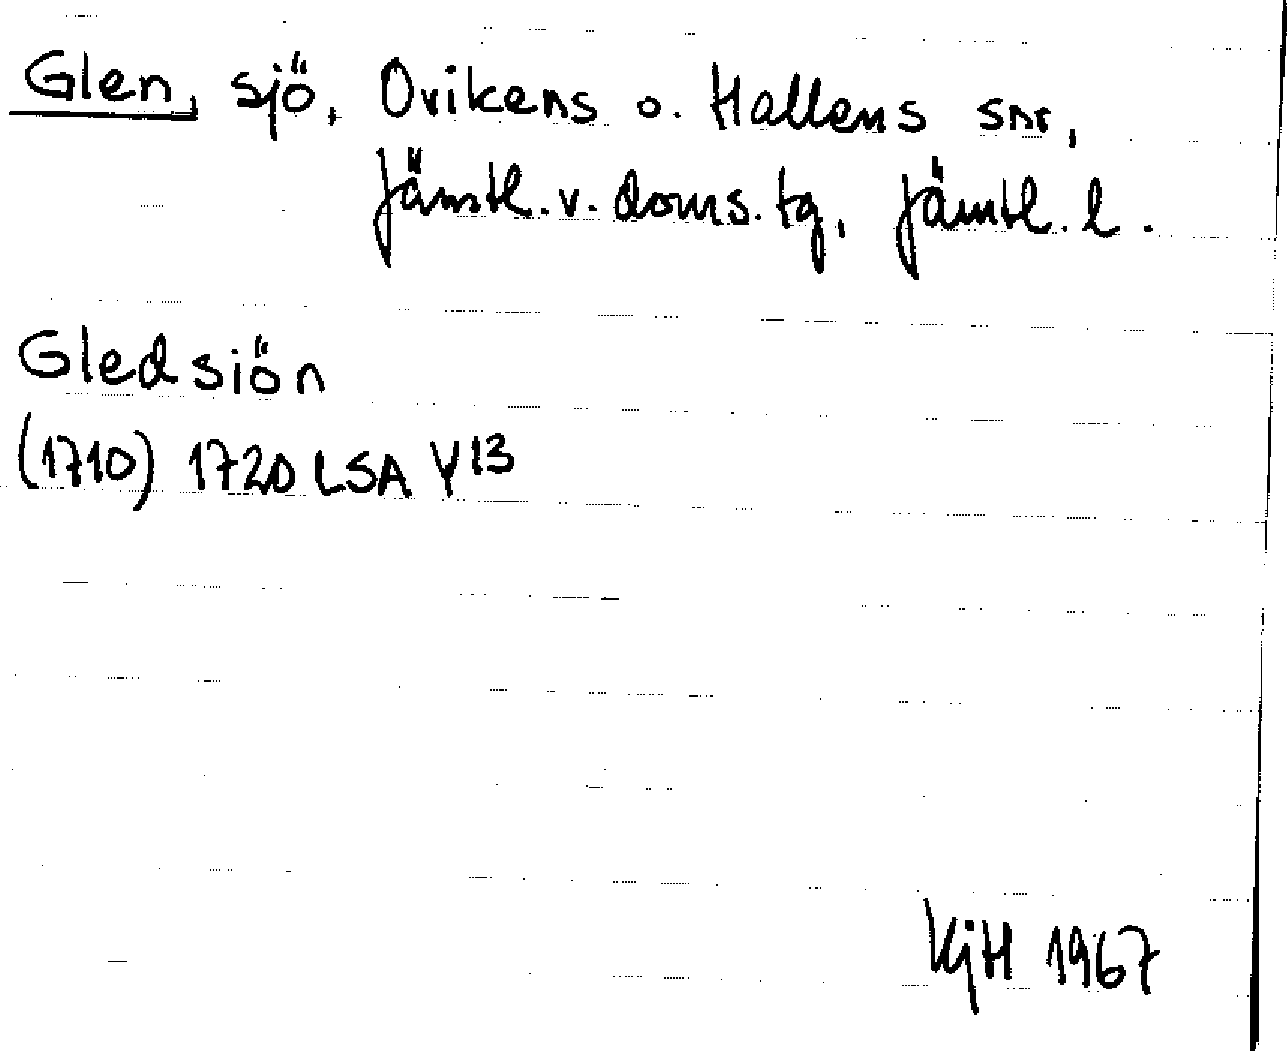 Glen, sjö, Ovikens o. Hallens snr,
Jämtl. v. doms. tg, Jämtl. l.
Gledsiön
(1710) 1720 LSA Y13
KjH 1967